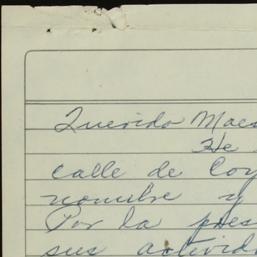 Querido Maes
He
calle de Coy
nombre y
Por la pres
sus activid